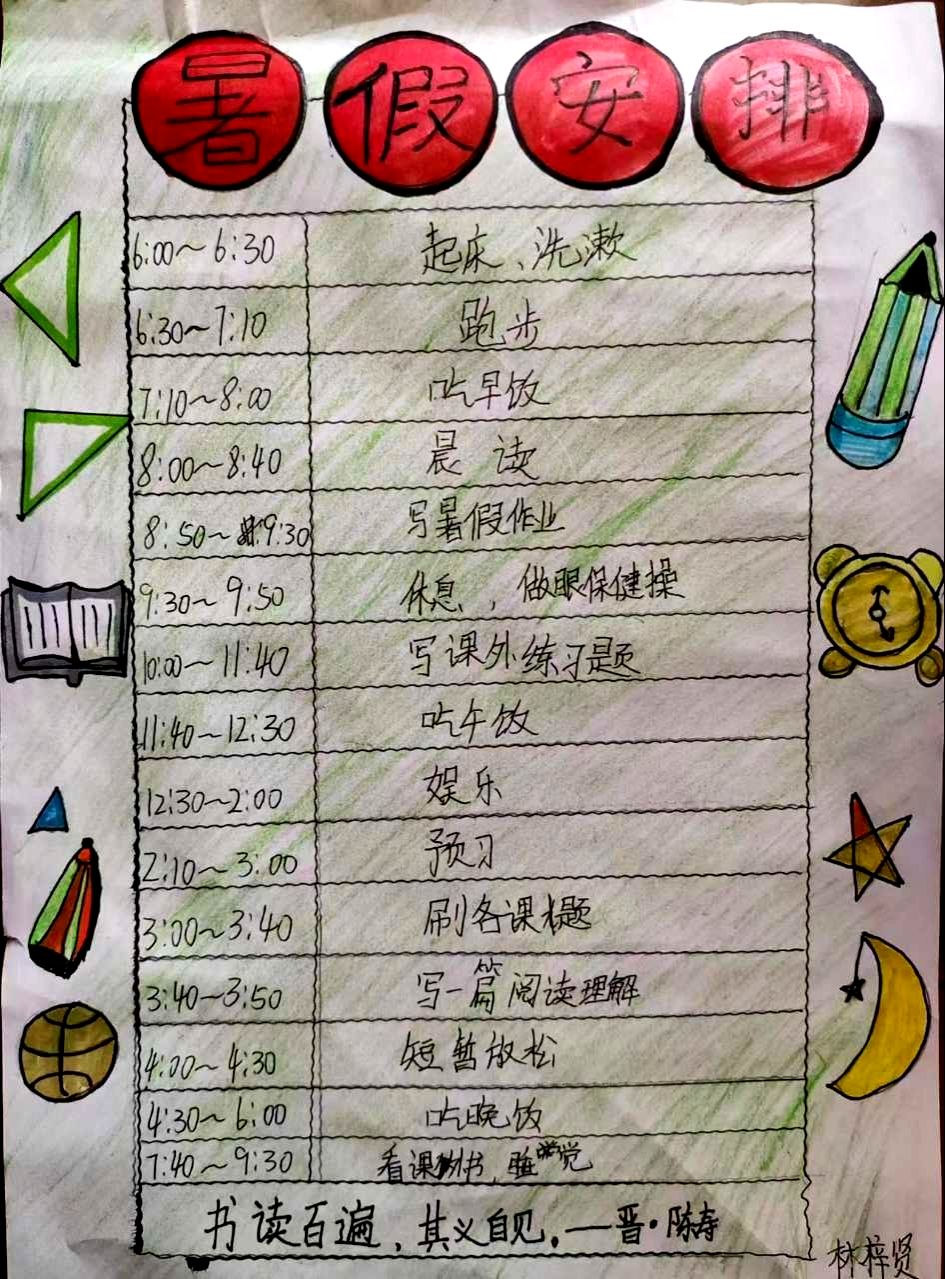 暑假安排
6:00～6:30 起床、洗漱
6:30～7:10 跑步
7:10～8:00 吃早饭
8:00～8:40 晨读
8:50～9:30 写暑假作业
9:30～9:50 休息,做眼保健操
10:00～11:40 写课外练习题
11:40～12:30 吃午饭
12:30～2:00 娱乐
2:10～3:00 预习
3:00～3:40 刷各课题
3:40～3:50 写一篇阅读理解
4:00～4:30 短暂放松
4:30～6:00 吃晚饭
7:40～9:30 看课外书,睡觉
书读百遍,其义自见。——晋·陈寿
林梓贤